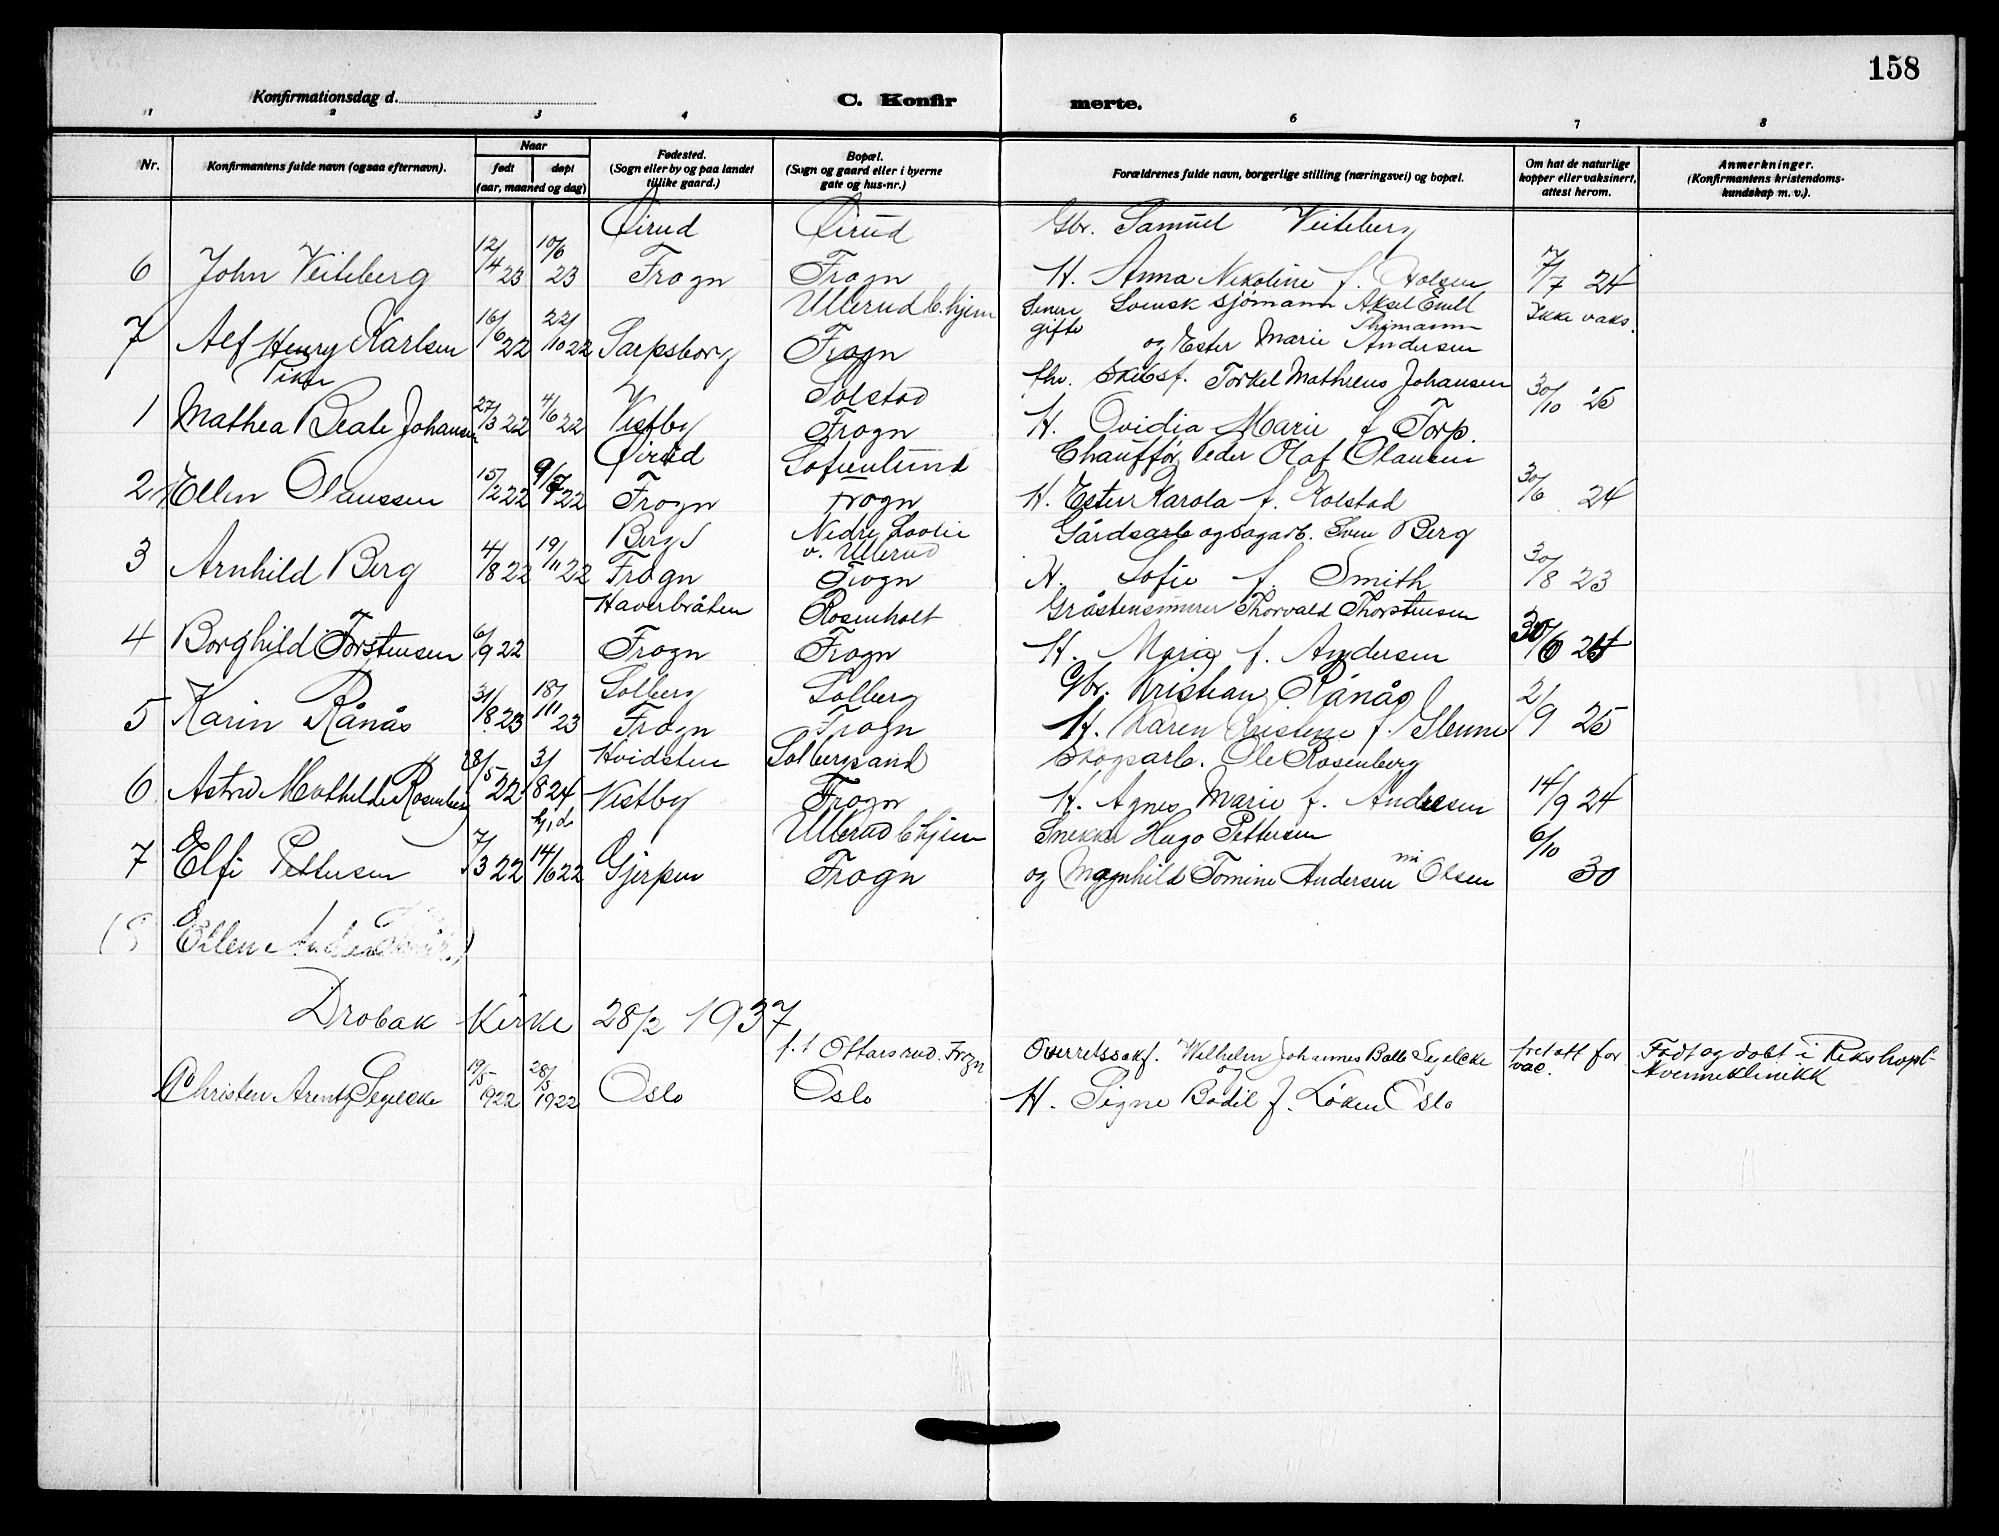 158
Konfirmationsdag d.
C. Konfir merte.
1 2 3 4 6 7 8
Nr. Konfirmantens fulde navn (ogsaa efternavn). Naar født døpt (aar, maaned og dag) Fødested. (Sogn eller by og paa landet tillike gaard.) Bopæl. (Sogn og gaard eller i byerne gate og hus-nr.) Forældrenes fulde navn, borgerlige stilling (næringsvei) og bopæl. Om hat de naturlige kopper eller vaksinert, attest herom. Anmerkninger. (Konfirmantens kristendoms-kundskap m. v.).
Dirud Dirud Gbr. Samuel Veiteberg
6 John Veiteberg 12/4 23 10/6 23 Frogn Frogn H. Anna Nikoline f. Holsen 7/7 24
Ullerud b.hjem Senere gifte Svensk sjømann Aksel Emil Ikke vaks.
7 Alf Henry Karlsen 16/6 22 22/10 22 Sarpsborg Frogn og Ester Marie Andersen
Piker
Solstad fhv. Skibsf. Torkel Matheus Johansen
1 Mathea Beate Johansen 27/3 22 4/6 22 Vestby Frogn H. Ovidia Marie f. Torp. 30/10 25
Dirud Sofienlund Chauffør Peder Olaf Olausen
2 Ellen Olaussen 15/2 22 9/7 22 Frogn Frogn H. Ester Karola f. Kolstad 30/6 24
Berg Nedre v. Ullerud Gårdsarb og sagarb. Sven Berg
3 Arnhild Berg 4/8 22 19/11 22 Frogn Frogn H. Sofie f. Smith 30/8 23
Haverbråten Rosenholt Gråstensmurer Thorvald Thorstensen
4 Borghild Torstensen 6/9 22 Frogn Frogn H. Maria f. Andersen 30/6 24
Solberg Solberg Gbr. Kristian Rånås
5 Karin Rånås 31/8 23 18/11 23 Frogn Frogn H. Karen Kristine f. 2/9 25
Hvidsten Solbergsand Skogsarb. Ole Rosenberg
6 Astrid Mathilde Rosenberg 28/5 22 3/8 24 Vestby Frogn H. Agnes Marie f. Andresen 14/9 24
hj.d. Ullerud b.hjem Snekker Hugo Pettersen
7 Elfi Pettersen 7/3 22 14/6 22 Gjerpen Frogn og Magnhild Tomine Andersen nu Olsen 6/10 30
Ellen
Drøbak Kirke 28/2 1937
f.t Ottarsrud. Frogn Overretssakf. Wilhelm Johannes Balle Segelcke fretatt for vac. Født og døbt i Rikshospt.
Christen Arentz Segelcke 19/5 1922 28/5 1922 Oslo Oslo og H. Signe Bodil f. Løken Oslo Kvinneklinikk